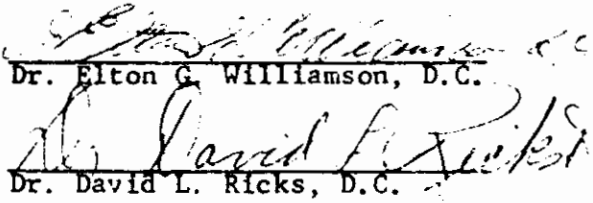 Elton G Williamson D.C.
Dr. Elton G. Williamson, D.C.
Dr David L Ricks
Dr. David L. Ricks, D.C.